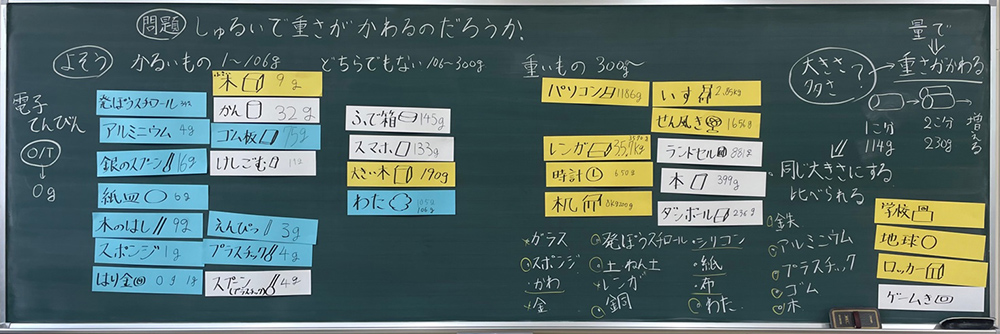 問題 しゅるいで重さがかわるのだろうか。
よそう
かるいもの 1～106g
どちらでもない 106～300g
重いもの 300g～
電子
てんびん
O/T
0g
発ぽうスチロール
アルミニウム 4g
銀のスプーン 16g
紙皿 6g
木のはし 9g
スポンジ 1g
はり金 0g 1g
木 9g
かん 32g
ゴム板 75g
けしごむ
えんぴつ 3g
プラスチック 4g
スプーン(プラスチック) 4g
ふで箱 145g
スマホ 133g
大きい木 190g
わた 105g
106g
パソコン 1186g
レンガ
時計 650g
机
いす 2.85kg
せんぷうき 1656g
ランドセル 881g
木 399g
ダンボール 236g
・ガラス
・スポンジ
・かわ
・金
・発ぽうスチロール
・土 ねん土
・レンガ
・銅
・シリコン
・紙
・布
・わた
・鉄
・アルミニウム
・プラスチック
・ゴム
・木
量で
大きさ
多さ ?
重さがかわる
1こ分
114g
2こ分
230g
増える
同じ大きさにする
比べられる
学校
地球
ロッカー
ゲームき